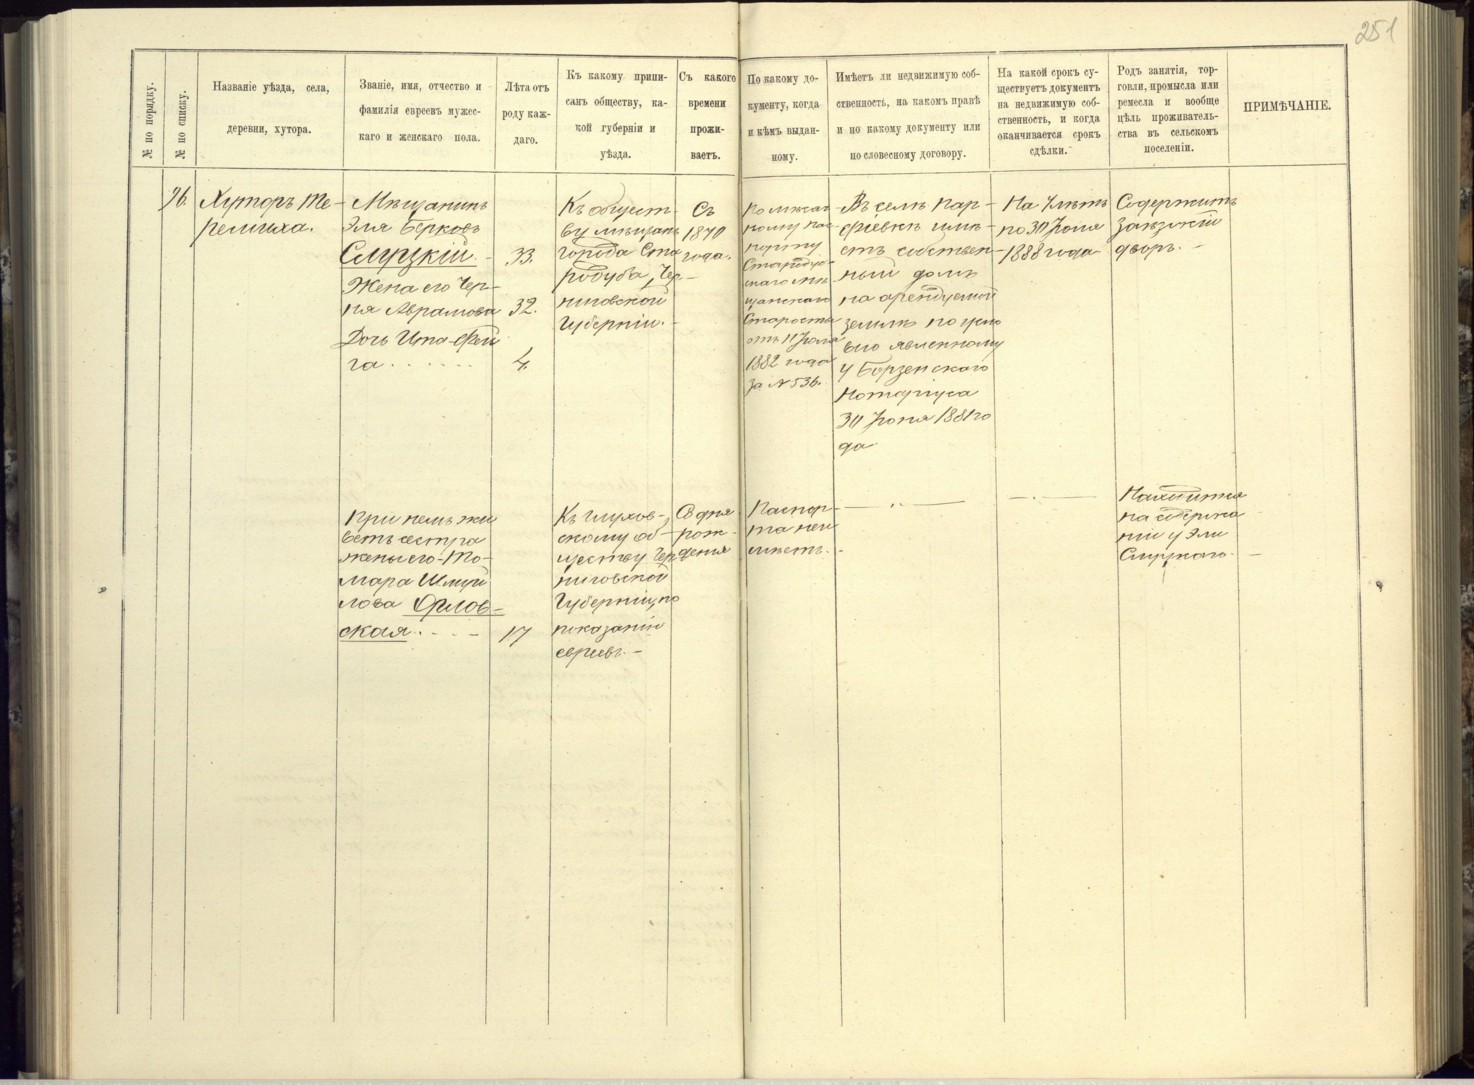 251
№ по порядку.
№ по списку.
Названіе уѣзда, села,
деревни, хутора.
Званіе, имя, отчество и
фамилія евреевъ мужес-
каго и женскаго пола.
Лѣта отъ
роду каж-
даго.
Къ какому припи-
санъ обществу, ка-
кой губерніи и
уѣзда.
Съ какого
времени
прожи-
ваетъ.
По какому до-
кументу, когда
и кѣмъ выдан-
ному.
Имѣетъ ли недвижимую соб-
ственность, на какомъ правѣ
и по какому документу или
по словесному договору.
На какой срокъ су-
ществуетъ документъ
на недвижимую соб-
ственность, и когда
оканчивается срокъ
сдѣлки.
Родъ занятія, тор-
говли, промысла или
ремесла и вообще
цѣль проживатель-
ства въ сельскомъ
поселеніи.
ПРИМѢЧАНІЕ.
96.
Хуторъ Те-
релиха.
Мѣщанинъ
Эля Берковъ
Слуцкій. -
33.
Жена его Чер-
ня Абрамова
32.
Дочь Ита-Фей
га . . . . . .
4.
Къ общест-
ву мѣщанъ
города Ста
родуба, Чер-
ниговской
Губерніи. -
Съ
1870
года.
По мѣсяч
ному пас-
порту
Стародуб-
скаго мѣ
щанскаго
Старосты
отъ 11 Іюля
1882 года
за № 536.
Въ селѣ Пар-
фіевкѣ имѣ-
етъ собствен-
ный домъ
на арендуемой
землѣ по усло
вію явленному
у Борзенскаго
Нотаріуса
30 Іюня 1881 го
да
На 7 лѣтъ
по 30 Іюня
1888 года
Содержитъ
Заѣзжій
дворъ. -
При немъ жи
ветъ сестра
жены его - То-
мара Шмуй
лова Орлов-
ская . - . -
17
Къ Глухов-
скому об-
ществу Чер
ниговской
Губерніи, по
показанію
евреевъ. -
Со дня
рож-
денія
Паспор-
та неи
мѣетъ. -
Находится
на содержа
ніи у Эли
Слуцкаго. -